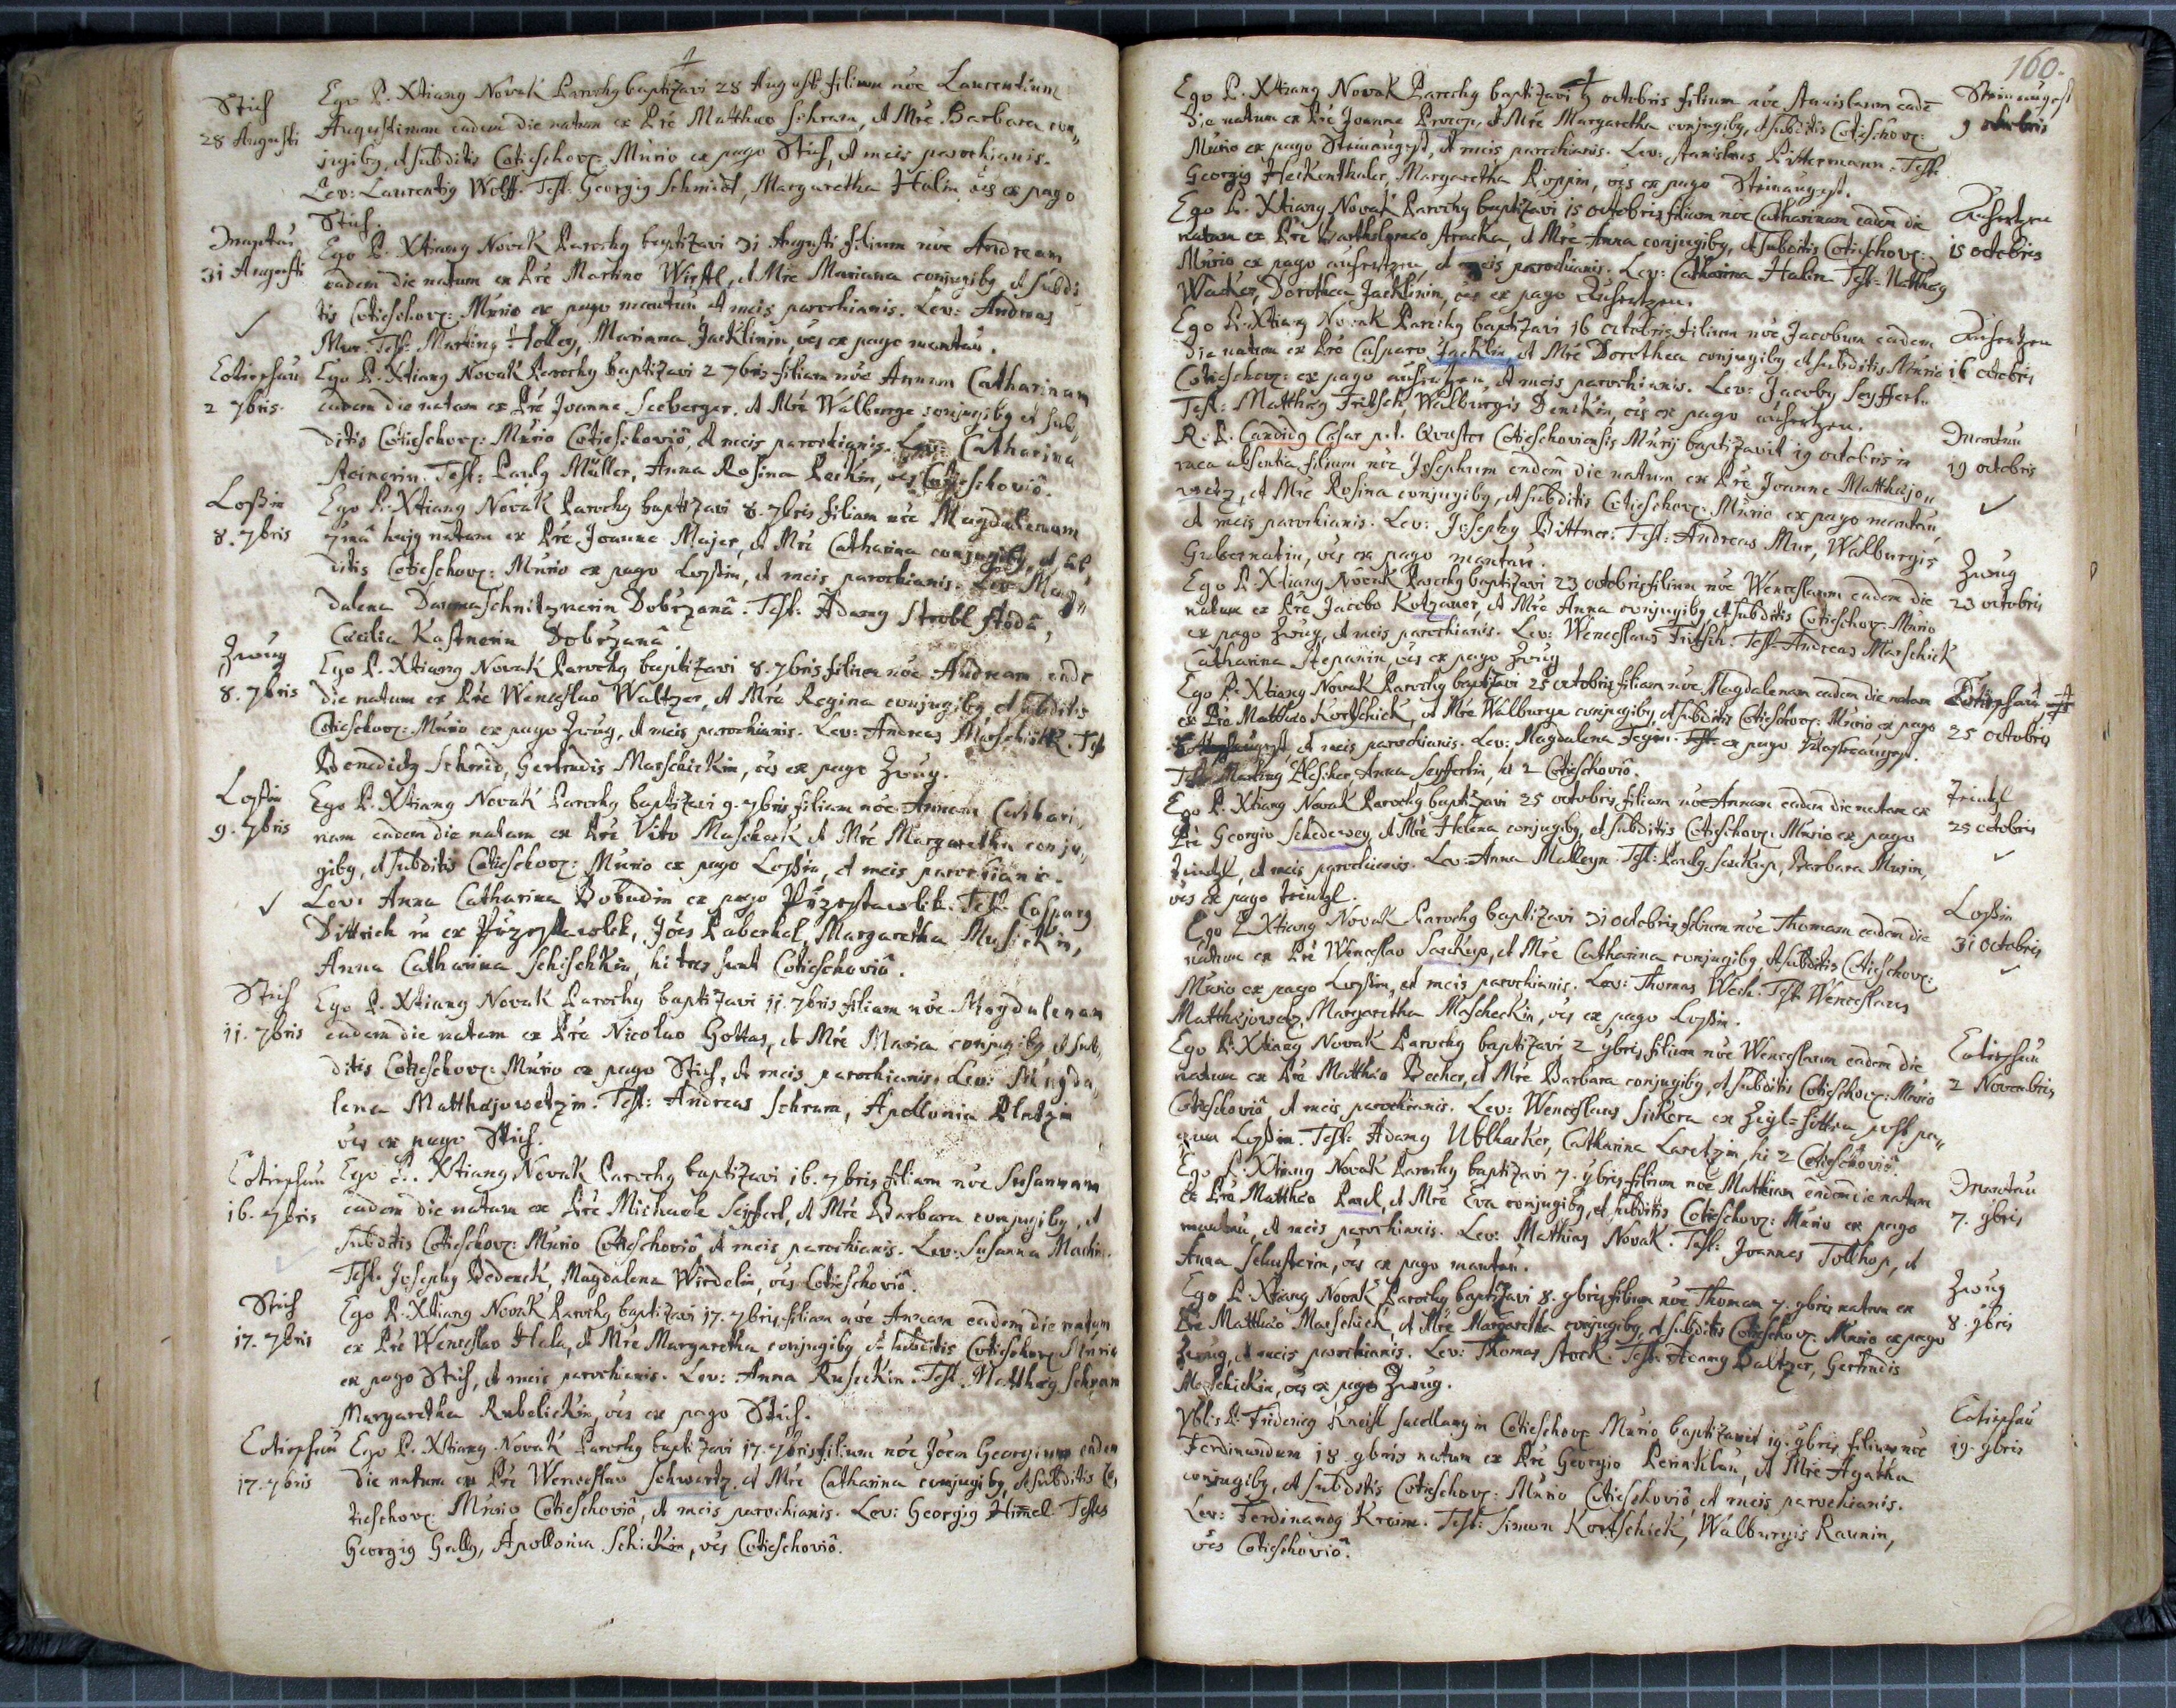 Stich
28 Augusti
Ego P. Xtiang Novak Parochg baptizavi 28 Augusti filium nōe Laurentium
Augustinum eadem die natum ex Pre Matthaeo Schram, et Mre Barbara con„
jugibg, et subditis Cotieschov: Murio ex pago Stich, et meis parochianis.
Lev: Laurentig Wolff. Test: Georgig Schmidt, Margaretha Halin ōes ex pago
Stich.
Mantau
31 Augusti
Ego P. Xtiang Novak Parochg baptizavi 31 Augusti filium nōe Andream
eadem die natum ex Pre Martino Wirftl, et Mre Mariana conjugibg, et subdi
tis Cotieschov: Murio ex pago mantau, et meis parochianis. Lev: Andreas
Mur. Test: Marting Holley, Marianna Jacklinin ōes ex pago mantau.
Cotieschau
2 7bris.
Ego P. Xtiang Novak Parochg baptizavi 2 7bris filiam nōe Annam Catharinam
eadem die natam ex Pre Joanne Seeberger, et Mre Walburge conjugibg et sub„
ditis Cotieschov: Murio Cotieschoviō, et meis parochianis. Lev: Catharina
Reinerin. Test: Paulg Müller, Anna Rosina Peckin, ōes Cotieschoviō.
Loßin
8. 7bris
Ego P. Xtiang Novak Parochg baptizavi 8. 7bris filiam nōe Magdalenam
7mā hujg natam ex Pre Joanne Majer, et Mre Catharina conjugibg, et sub
ditis Cotieschov: Murio ex pago Loßin, et meis parochianis. Lev: Mag„
dalena Dammaschnitznerin Dobrzanā. Test: Adamg Strobl Stodā,
Caecilia Kastnerin Dobrzanā.
Zwug
8. 7bris
Ego P. Xtiang Novak Parochg baptizavi 8. 7bris filium nōe Andream eadē
die natum ex Pre Wenceslao Waltzer, et Mre Regina conjugibg et subditis
Cotieschov: Murio ex pago Zwug, et meis parochianis. Lev: Andreas Marschick. Test
Benedictg Schmid, Gertrudis Marschickin, ōes ex pago Zwug.
Loßin
9. 7bris
Ego P. Xtiang Novak Parochg baptizavi 9. 7bris filiam nōe Annam Cathari„
nam eadem die natam ex Pre Vito Maschek, et Mre Margaretha conju„
gibg, et subditis Cotieschov: Murio ex pago Loßin, et meis parochianis.
Lev: Anna Catharina Bobudin ex pago Przestawlik. Test: Casparg
Dittrich ex Przestawlek, Jōes Paberhel, Margaretha Musickin,
Anna Catharina Schischkin, hi tres sunt Cotieschoviō.
Stich
11. 7bris
Ego P. Xtiang Novak Parochg baptizavi 11. 7bris filiam nōe Magdalenam
eadem die natam ex Pre Nicolao Gottas, et Mre Maria conjugibg et sub„
ditis Cotieschov: Murio ex pago Stich, et meis parochianis. Lev: Magda„
lena Matthajowetzin. Test: Andreas Schram, Apollonia Plutzin
ōes ex pago Stich.
Cotieschau
16. 7bris
Ego P. Xtiang Novak Parochg baptizavi 16. 7bris filiam nōe Susannam
eadem die natam ex Pre Michaele Seyfferl, et Mre Barbara conjugibg, et
subditis Cotieschov: Murio Cotieschoviō, et meis parochianis. Lev: Susanna Machin.
Test. Josephg Bedenck, Magdalena Wirdelin, ōes Cotieschoviō.
Stich
17. 7bris
Ego P. Xtiang Novak Parochg baptizavi 17. 7bris filiam nōe Annam eadem die natam
ex Pre Wenceslao Hala, et Mre Margaretha conjugibg et subditis Cotieschov: Murio
ex pago Stich, et meis parochianis. Lev: Anna Ruseckin. Test. Matthaeg Schram
Margaretha Rubelickin, ōes ex pago Stich.
Cotieschau
17. 7bris
Ego P. Xtiang Novak Parochg baptizavi 17. 7bris filium nōe Joem Georgium eadem
die natum ex Pre Wenceslao Schwartz, et Mre Catharina conjugibg, et subditis Co
tieschov: Murio Cotieschoviō, et meis parochianis. Lev: Georgig Himel Testes
Georgig Gally, Apollonia Schickin, ōes Cotieschoviō.
160.
Steinaugest
9 octobris
Ego P. Xtiang Novak Parochg baptizavi 9 octobris filium nōe Stanislaum eadē
die natum ex Pre Joanne Procop, et Mre Margaretha conjugibg, et subditis Cotieschov:
Murio ex pago Steinaugest, et meis parochianis. Lev: Stanislaus Pittermann. Test:
Georgig Heckenthaler, Margaretha Poppin, ōes ex pago Steinaugest.
Auhertzen
15 octobris
Ego P. Xtiang Novak Parochg baptizavi 15 octobris filiam nōe Catharinam eadem die
natam ex Pre Bartholomaeo Straka, et Mre Anna conjugibg, et subditis Cotieschov:
Murio ex pago auhertzen, et meis parochianis. Lev: Catharina Halin Test: Matthaeg
Wacker, Dorothea Jacklinin, ōes ex pago Auhertzen.
Auhertzen
16 octobris
Ego P. Xtiang Novak Parochg baptizavi 16 octobris filium nōe Jacobum eadem
die natum ex Pre Casparo Jacklin, et Mre Dorothea conjugibg et subditis Murio
Cotieschov: ex pago auhertzen, et meis parochianis. Lev: Jacobg Seyfferl.
Test: Matthaeg Fritsch, Walburgis Denckin, ōes ex pago auhertzen.
Mantau
19 octobris
R. P. Candidg Casar p. t. Qvaestor Cotieschoviensis Murij baptizavit 19 octobris in
mea absentia filium nōe Josephum eadem die natum ex Pre Joanne Matthajo„
wetz, et Mre Rosina conjugibg, et subditis Cotieschov: Murio ex pago mantau,
et meis parochianis. Lev: Josephg Bittner. Test: Andreas Mur, Walburgis
Gubernatin, ōes ex pago mantau.
Zwug
23 octobris
Ego P. Xtiang Novak Parochg baptizavi 23 octobris filium nōe Wenceslaum eadem die
natum ex Pre Jacobo Kotzauer, et Mre Anna conjugibg, et subditis Cotieschov: Murio
ex pago Zwug, et meis parochianis. Lev: Wenceslaus Fritsch. Test: Andreas Marschick
Catharina Stepanin, ōes ex pago Zwug
25 octobris
Ego P. Xtiang Novak Parochg baptizavi 25 octobris filiam nōe Magdalenam eadem die natam
ex Pre Matthaeo Kortschick, et Mre Walburge conjugibg, et subditis Cotieschov: Murio ex pago
et meis parochianis. Lev: Magdalena Fegin. Test: ex pago
Test: Marting Elesiker, Anna Seyfferlin, hi 2 Cotieschoviō.
Zeinzl
25 octobris
Ego P. Xtiang Novak Parochg baptizavi 25 octobris filiam nōe Annam eadem die natam ex
Pre Georgio Schedewey, et Mre Helena conjugibg, et subditis Cotieschov: Murio ex pago
et meis parochianis. Lev: Anna Malleyn. Test: Paulg Saukup, Barbara Murin,
ōes ex pago
Loßin
31 octobris
Ego P. Xtiang Novak Parochg baptizavi 31 octobris filium nōe Thomam eadem die
natum ex Pre Wenceslao Saukup, et Mre Catharina conjugibg, et subditis Cotieschov:
Murio ex pago Loßin, et meis parochianis. Lev: Thomas Weih. Test: Wenceslaus
Matthajowetz, Margaretha Mascheckin, ōes ex pago Loßin.
Cotieschau
2 Novembris
Ego P. Xtiang Novak Parochg baptizavi 2 9bris filium nōe Wenceslaum eadem die
natum ex Pre Matthaeo Becher, et Mre Barbara conjugibg, et subditis Cotieschov: Murio
Cotieschoviō, et meis parochianis. Lev: Wenceslaus Sickora ex Zigl-hütten post pa„
gum Loßin. Test: Adamg Ublhacker, Catharina Laretzin, hi 2 Cotieschoviō.
Mantau
7. 9bris
Ego P. Xtiang Novak Parochg baptizavi 7. 9bris filium nōe Mathiam eadem die natum
ex Pre Matthaeo Paul, et Mre Eva conjugibg, et subditis Cotieschov: Murio ex pago
mantau, et meis parochianis. Lev: Mathias Novak. Test: Joannes Tollhop, et
Anna Schusterin, ōes ex pago mantau.
Zwug
8. 9bris
Ego P. Xtiang Novak Parochg baptizavi 8. 9bris filium nōe Thomam 7. 9bris natum ex
Pre Matthaeo Marschick, et Mre Margaretha conjugibg, et subditis Cotieschov: Murio ex pago
Zwug, et meis parochianis. Lev: Thomas Stock. Test: Adamg Baltzer, Gertrudis
Maschickin, ōes ex pago Zwug.
Cotieschau
19. 9bris
P. Friderig Kneisl sacellang in Cotieschov: Murio baptizavit 19. 9bris filium nōe
Ferdinandum 18 9bris natum ex Pre Georgio Perinklau, et Mre Agatha
conjugibg, et subditis Cotieschov: Murio Cotieschoviō, et meis parochianis.
Lev: Ferdinandg Kraim. Test: Simon Kortschick, Walburgis Raunin,
ōes Cotieschoviō.